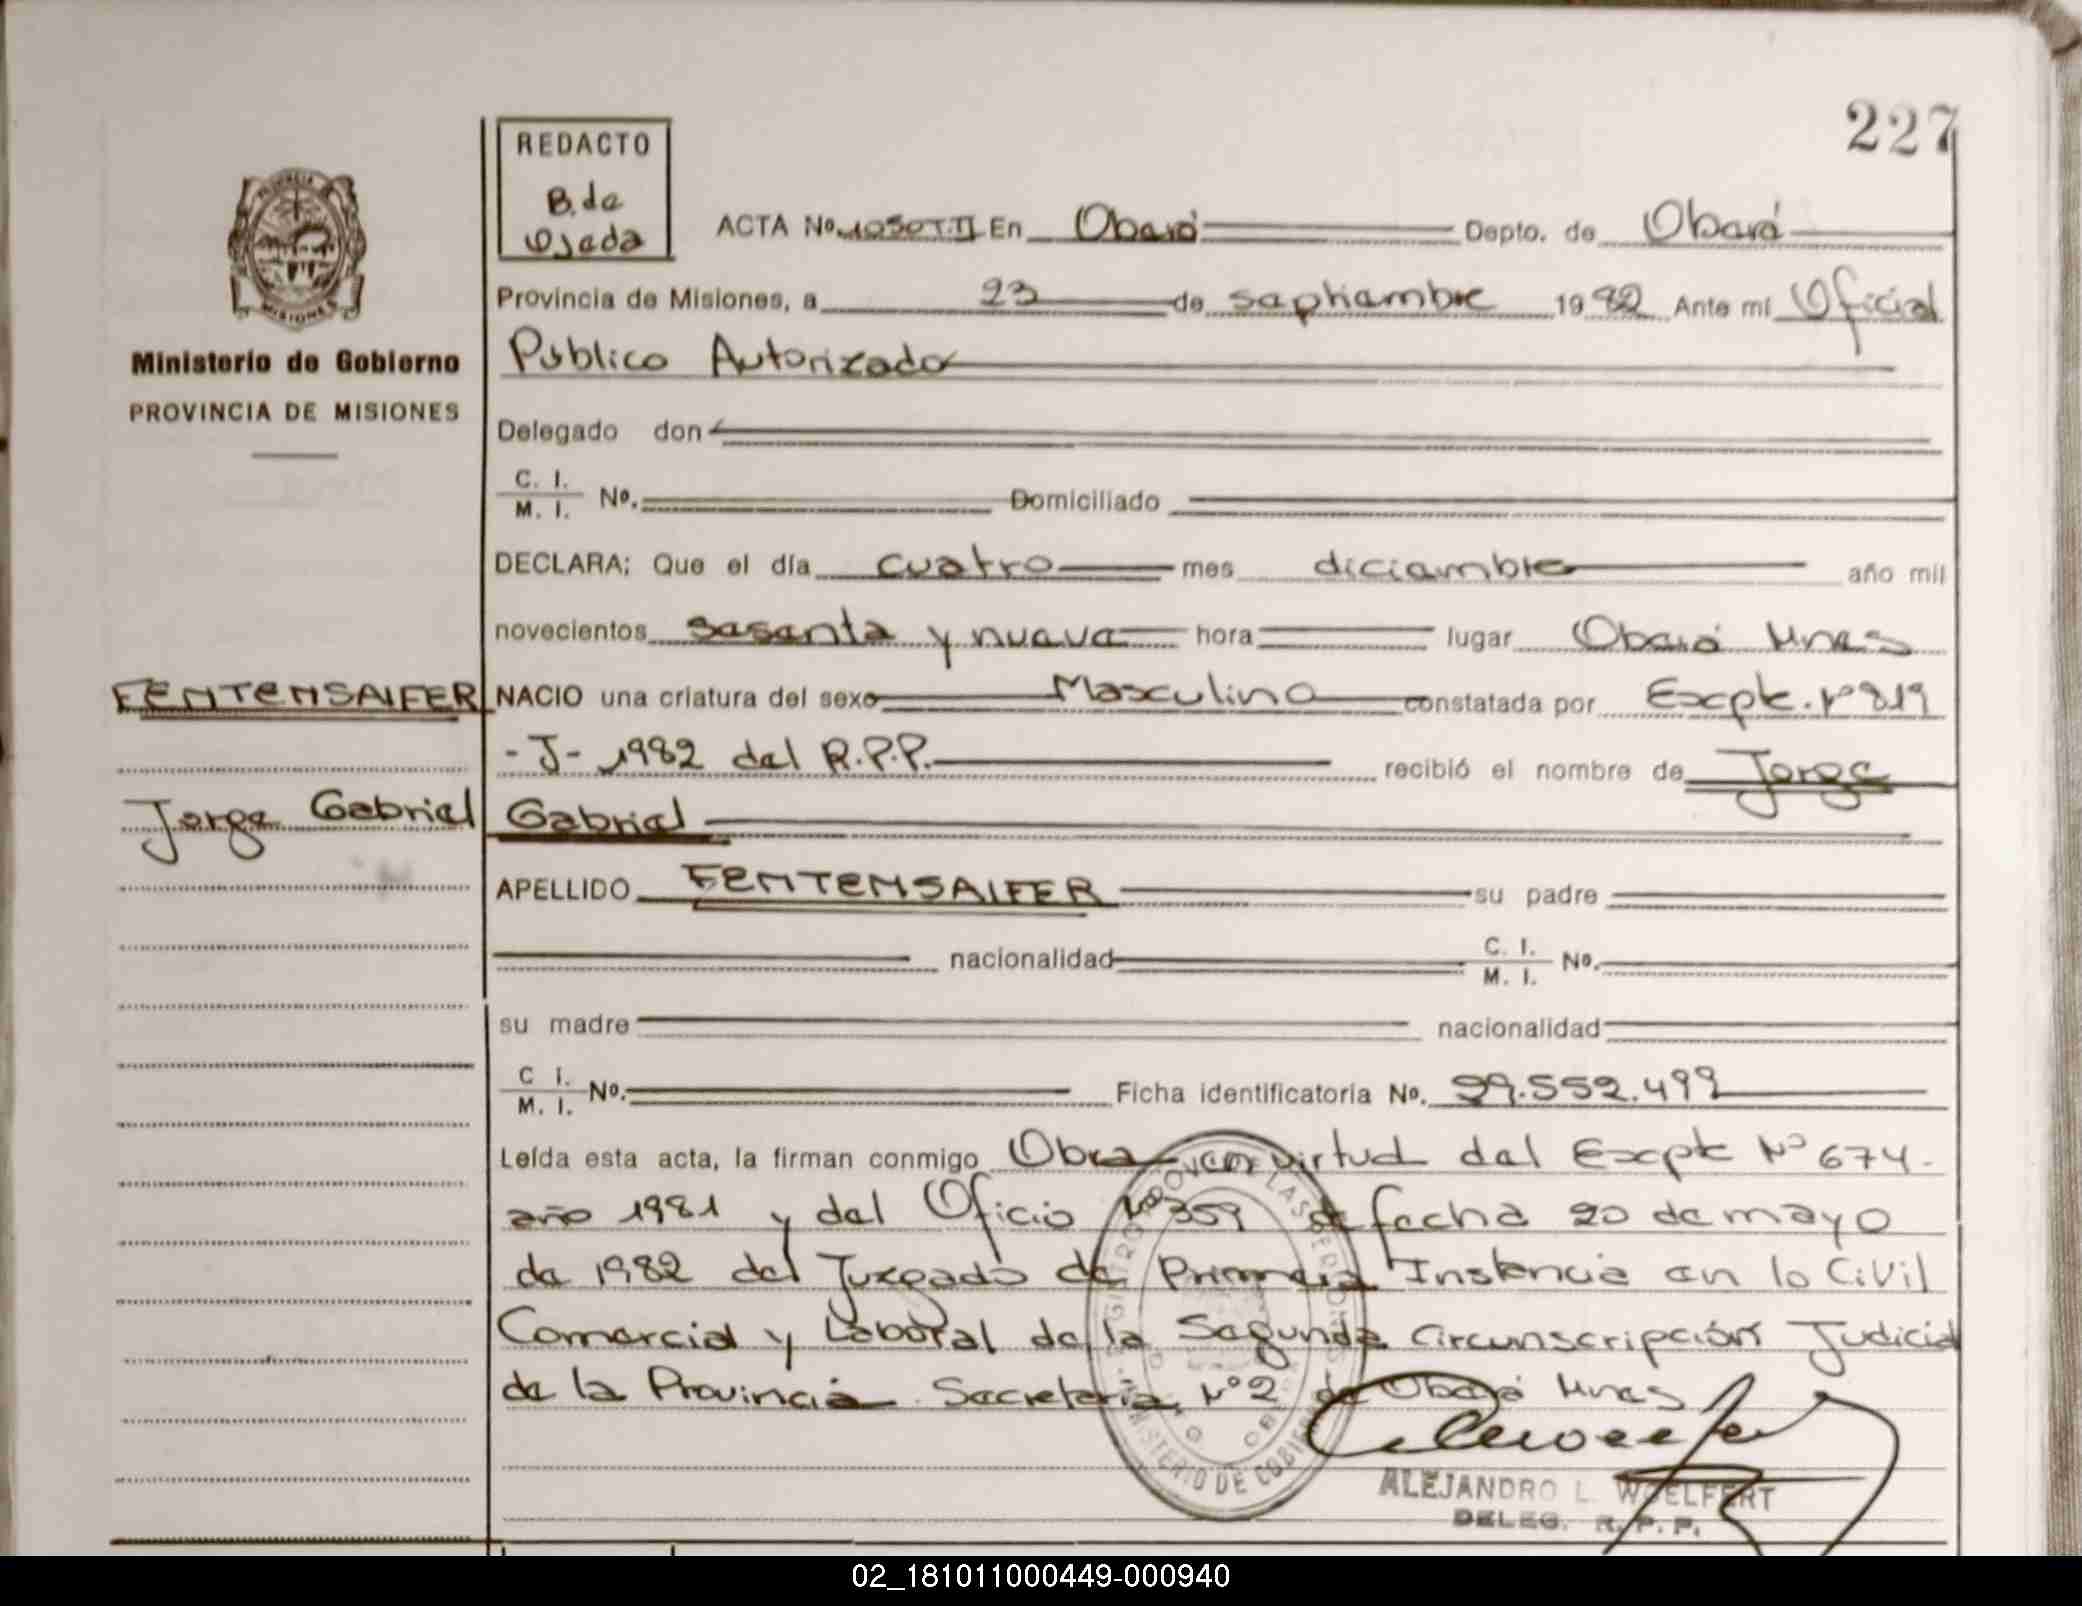 227
REDACTO
B. de
Ojeda
ACTA Nº. 1050 T.II En Oberá Depto. de Oberá
Provincia de Misiones, a 23 de septiembre 1982 Ante mí Oficial
Público Autorizado
Ministerio de Gobierno
PROVINCIA DE MISIONES
Delegado don
C. I.
M. I. Nº. Domiciliado
DECLARA: Que el día cuatro mes diciembre año mil
novecientos sesenta y nueve hora lugar Oberá Mnes
FENTENSAIFER
NACIO una criatura del sexo Masculino constatada por Expte. Nº 819
-J- 1982 del R.P.P. recibió el nombre de Jorge
Jorge Gabriel
Gabriel
APELLIDO FENTENSAIFER su padre
nacionalidad C. I.
M. I. Nº.
su madre nacionalidad
C I.
M. I. Nº. Ficha identificatoria No. 29.552.499
Leída esta acta, la firman conmigo Obra en virtud del Expte Nº 674-
año 1981 y del Oficio Nº 359 de fecha 20 de mayo
de 1982 del Juzgado de Primera Instancia en lo Civil
Comercial y Laboral de la Segunda Circunscripción Judicial
de la Provincia Secretaria Nº 2 de Oberá Mnes
ALEJANDRO L. WOELFERT
DELEG. R. P. P.
MINISTERIO DE GOBIERNO
02_181011000449-000940